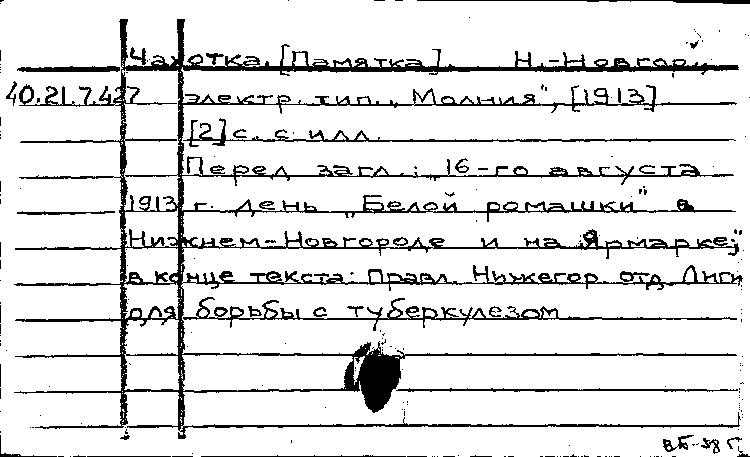 Чахотка. [Памятка]. Н.-Новгор.,
40.21.7.427 электр. тип. „Молния", [1913]
[2] с. с илл.
Перед загл.: „16-го августа
1913 г. день „Белой ромашки" в
Нижнем-Новгороде и на Ярмарке;"
в конце текста: Правл. Нижегор. отд. Лиги
для борьбы с туберкулезом